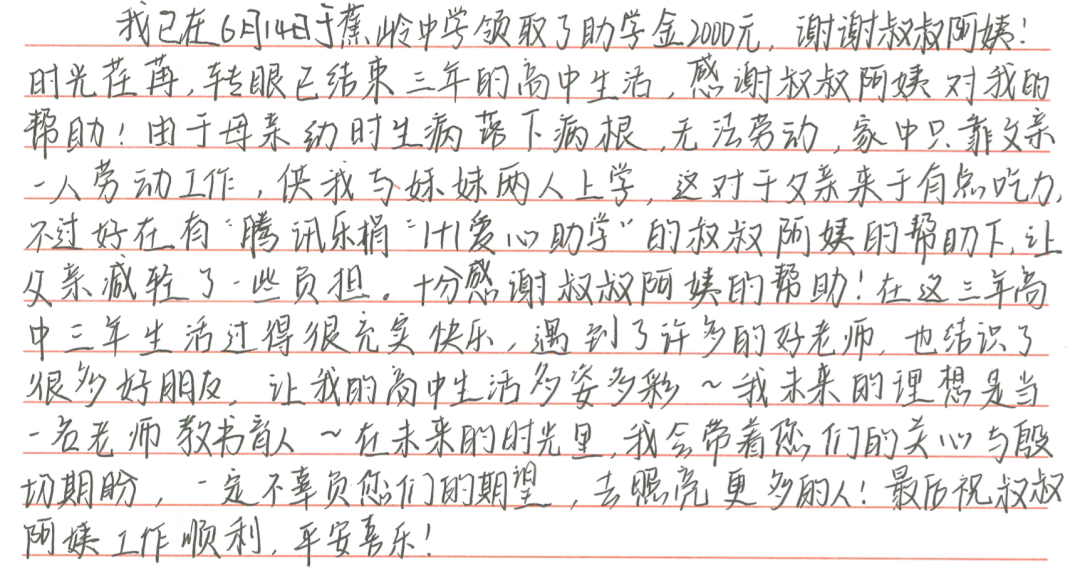 我已在6月14日于蕉岭中学领取了助学金2000元，谢谢叔叔阿姨！
时光荏苒，转眼已结束三年的高中生活，感谢叔叔阿姨对我的
帮助！由于母亲幼时生病落下病根，无法劳动，家中只靠父亲
一人劳动工作，供我与妹妹两人上学，这对于父亲来于有点吃力，
不过好在有“腾讯乐捐”“1+1爱心助学”的叔叔阿姨的帮助下，让
父亲减轻了一些负担。十分感谢叔叔阿姨的帮助！在这三年高
中三年生活过得很充实快乐，遇到了许多的好老师，也结识了
很多好朋友，让我的高中生活多姿多彩～我未来的理想是当
一名老师教书育人～在未来的时光里，我会带着您们的关心与殷
切期盼，一定不辜负您们的期望，去照亮更多的人！最后祝叔叔
阿姨工作顺利，平安喜乐！